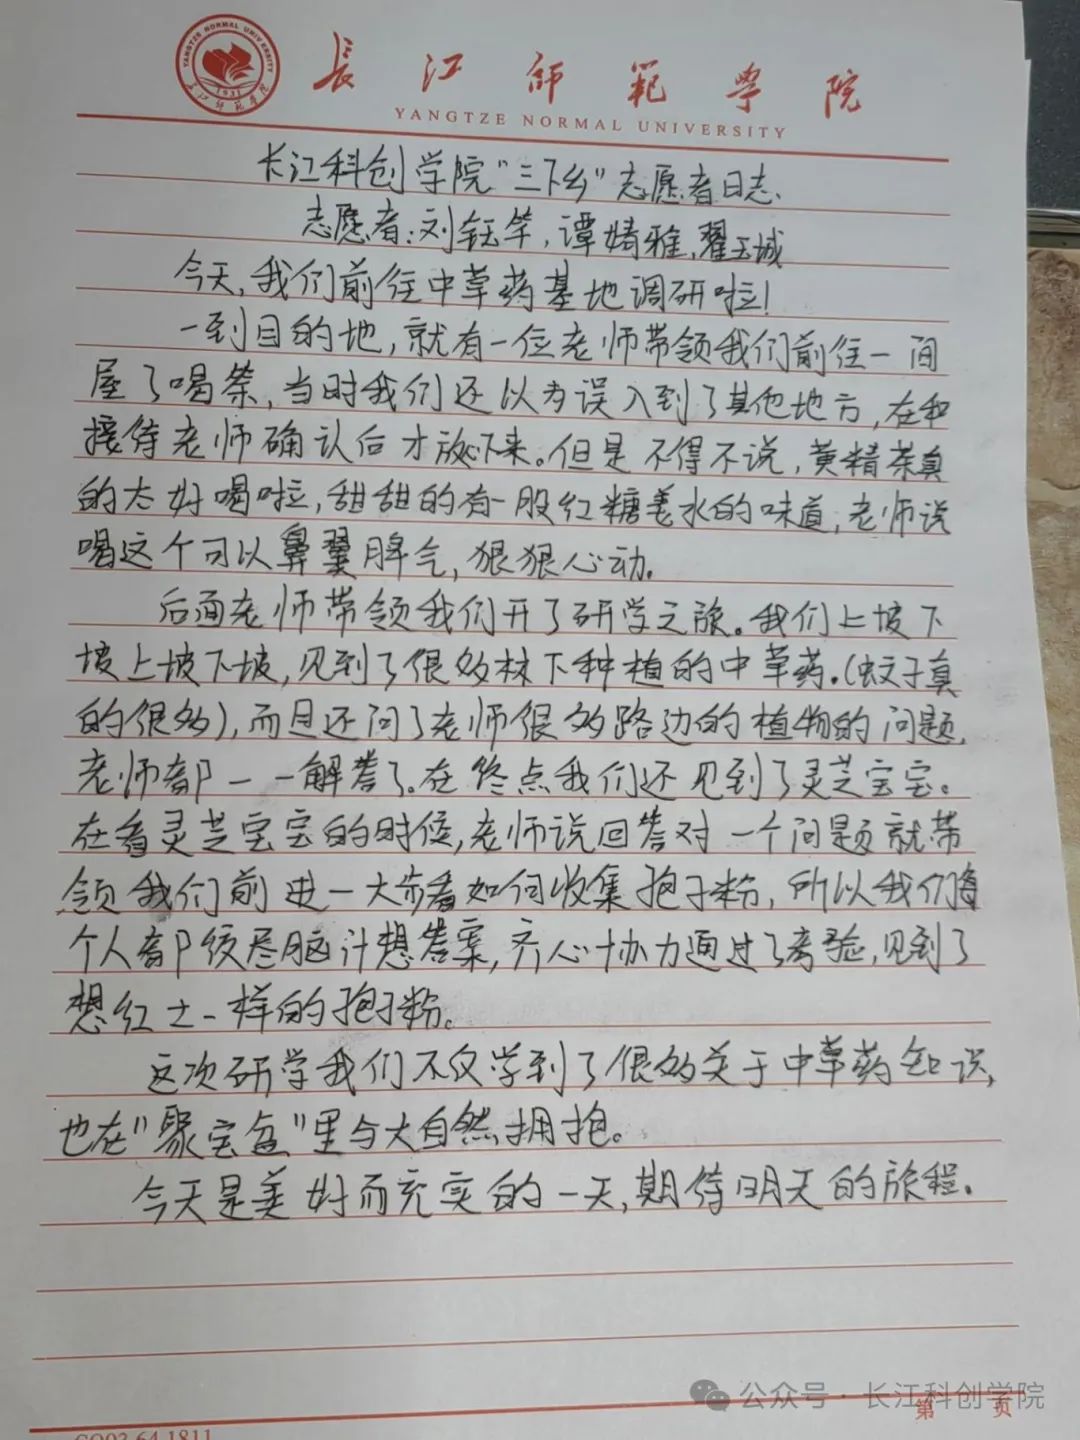 YANGTZE NORMAL UNIVERSITY
1931
長江師範學院
長江師範學院
YANGTZE NORMAL UNIVERSITY
长江科创学院"三下乡"志愿者日志.
志愿者:刘钰竿,谭婧雅,翟玉城
今天,我们前往中草药基地调研啦!
一到目的地,就有一位老师带领我们前往一间
屋了喝茶,当时我们还以为误入到了其他地方,在和
接待老师确认后才放心下来。但是不得不说,黄精茶真
的太好喝啦,甜甜的有一股红糖姜水的味道,老师说
喝这个可以鼻翼脾气,狠狠心动.
后面老师带领我们开了研学之旅。我们上坡下
坡上坡下坡,见到了很多林下种植的中草药.(蚊子真
的很多),而且还问了老师很多路边的植物的问题,
老师都一一解答了。在终点我们还见到了灵芝宝宝。
在看灵芝宝宝的时候,老师说回答对一个问题就带
领我们前进一大步看如何收集孢子粉,所以我们每
个人都绞尽脑汁想答案,齐心协力通过了考验,见到了
想红土一样的孢子粉。
这次研学我们不仅学到了很多关于中草药知识,
也在"聚宝盆"里与大自然拥抱。
今天是美好而充实的一天,期待明天的旅程.
公众号·长江科创学院
第 页
CQ03.64.1811